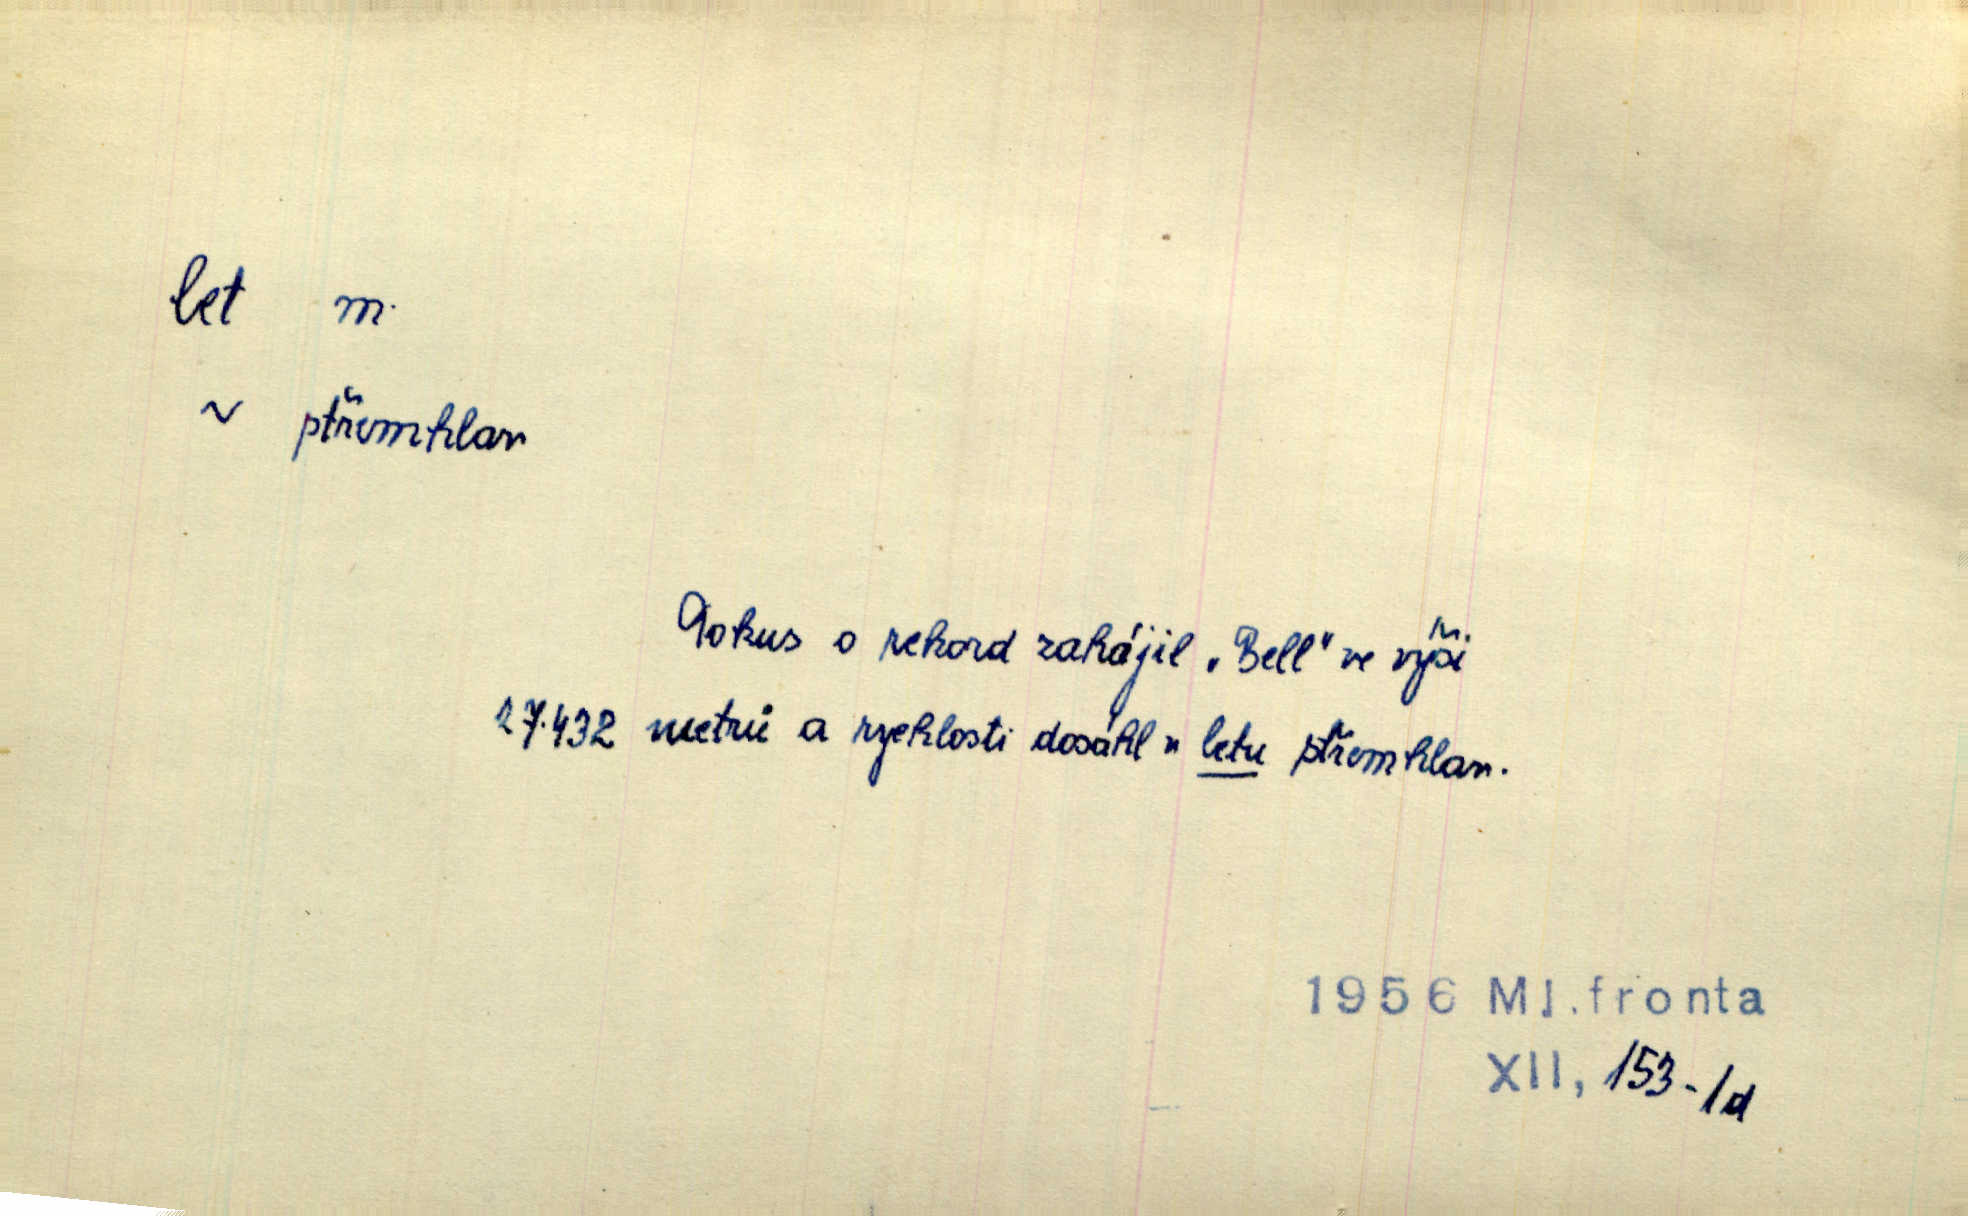 let m.
~ střemhlav
Pokus o rekord zahájil „Bell" ve výši
27.432 metrů a rychlosti dosáhl v letu střemhlav.
1956 Ml.fronta
XII, 153-1d